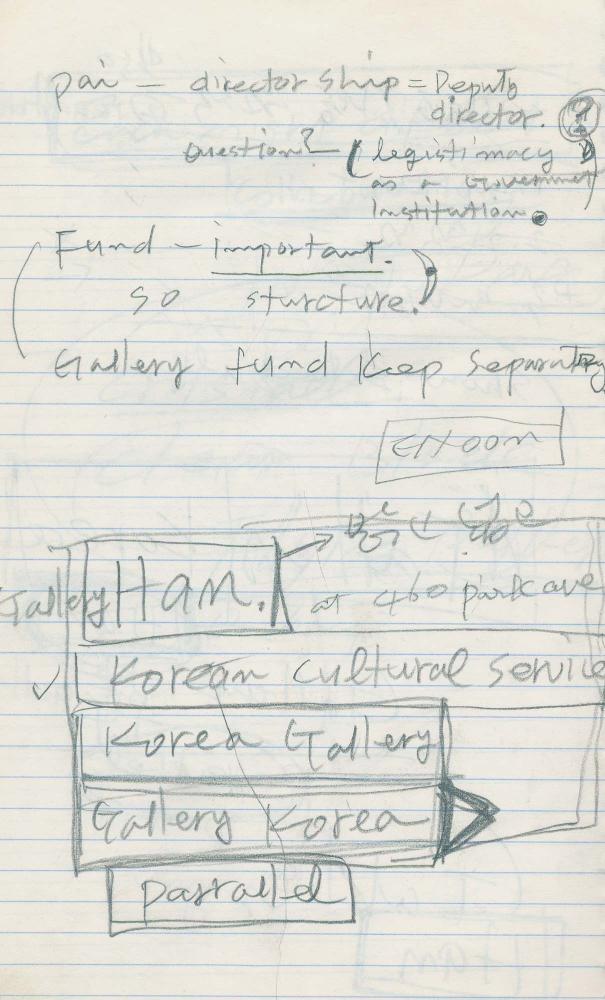 pai — director ship = Deputy
director.
question? — ( legistimacy
as a Government
Institution.
Fund — important.
so sturcture.)
Gallery fund Keep Separatey
Gallery Ham.
at 460 park ave
✓ Korean Cultural Service
Korea Gallery
Gallery Korea
parallel